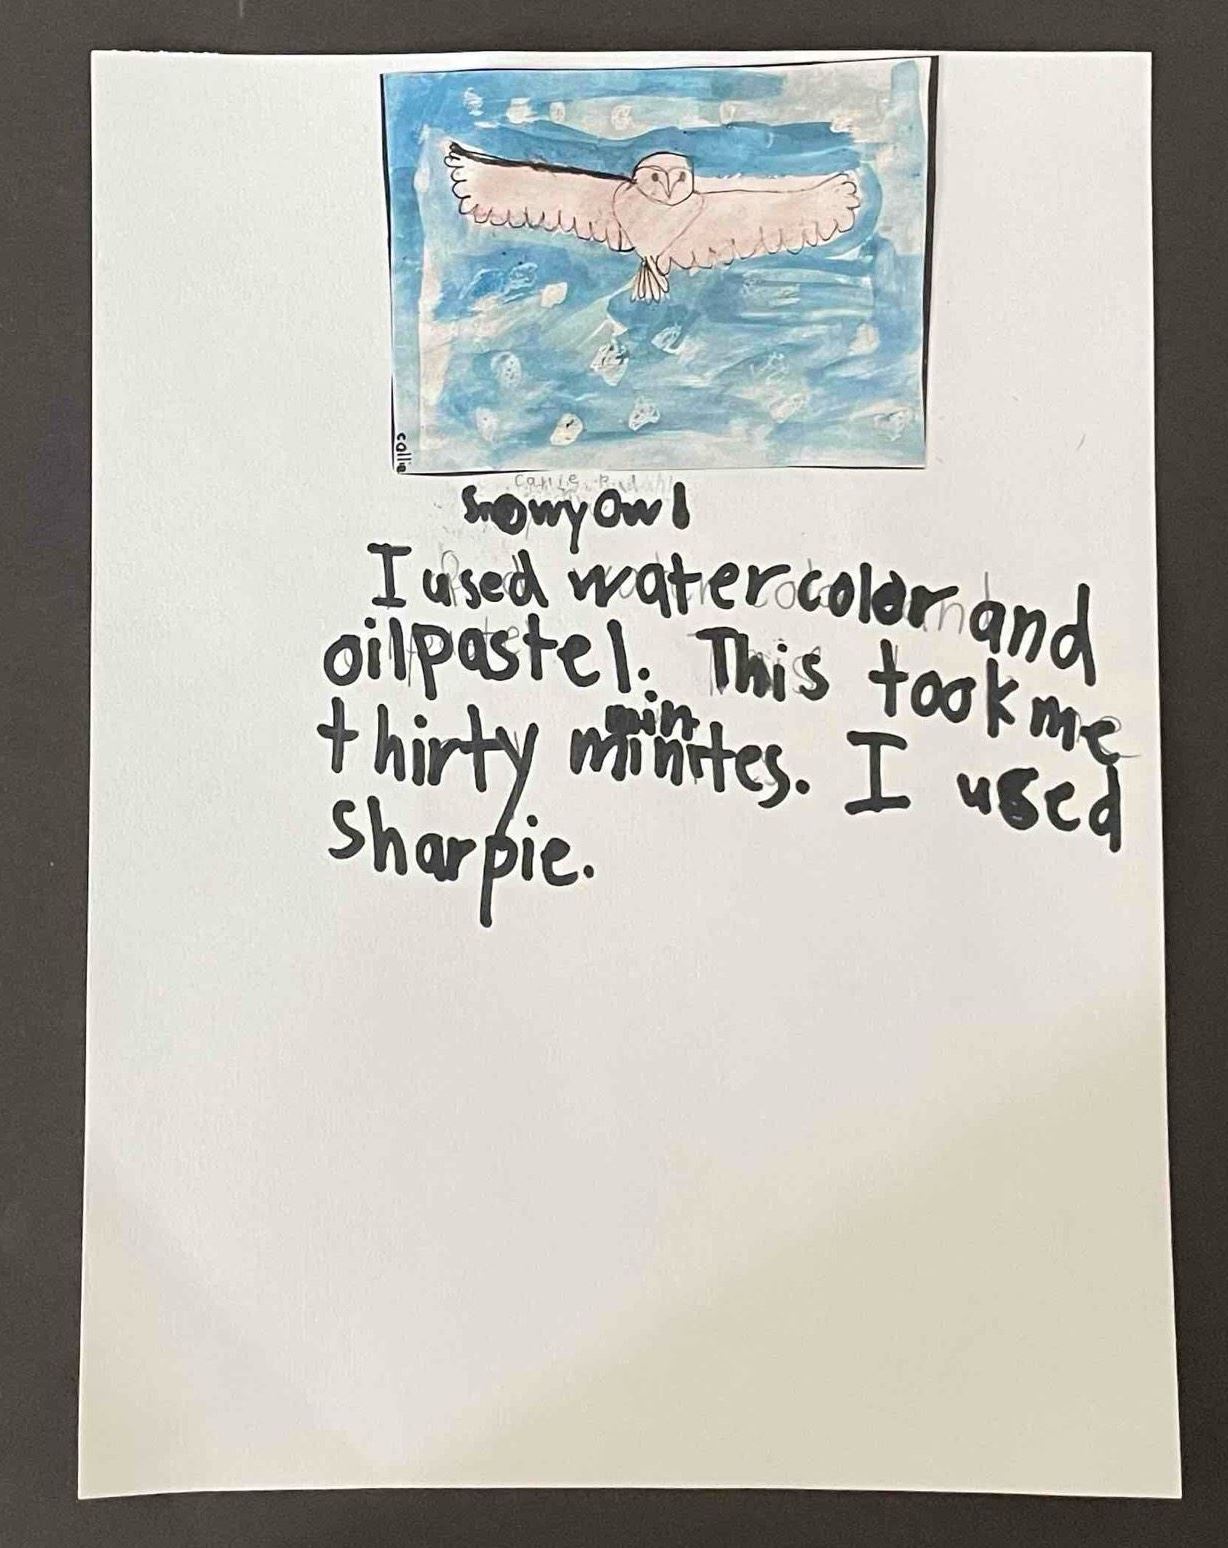 callie
Snowy Owl
I used watercolor and
oil pastel. This took me
min
thirty minites. I used
Sharpie.